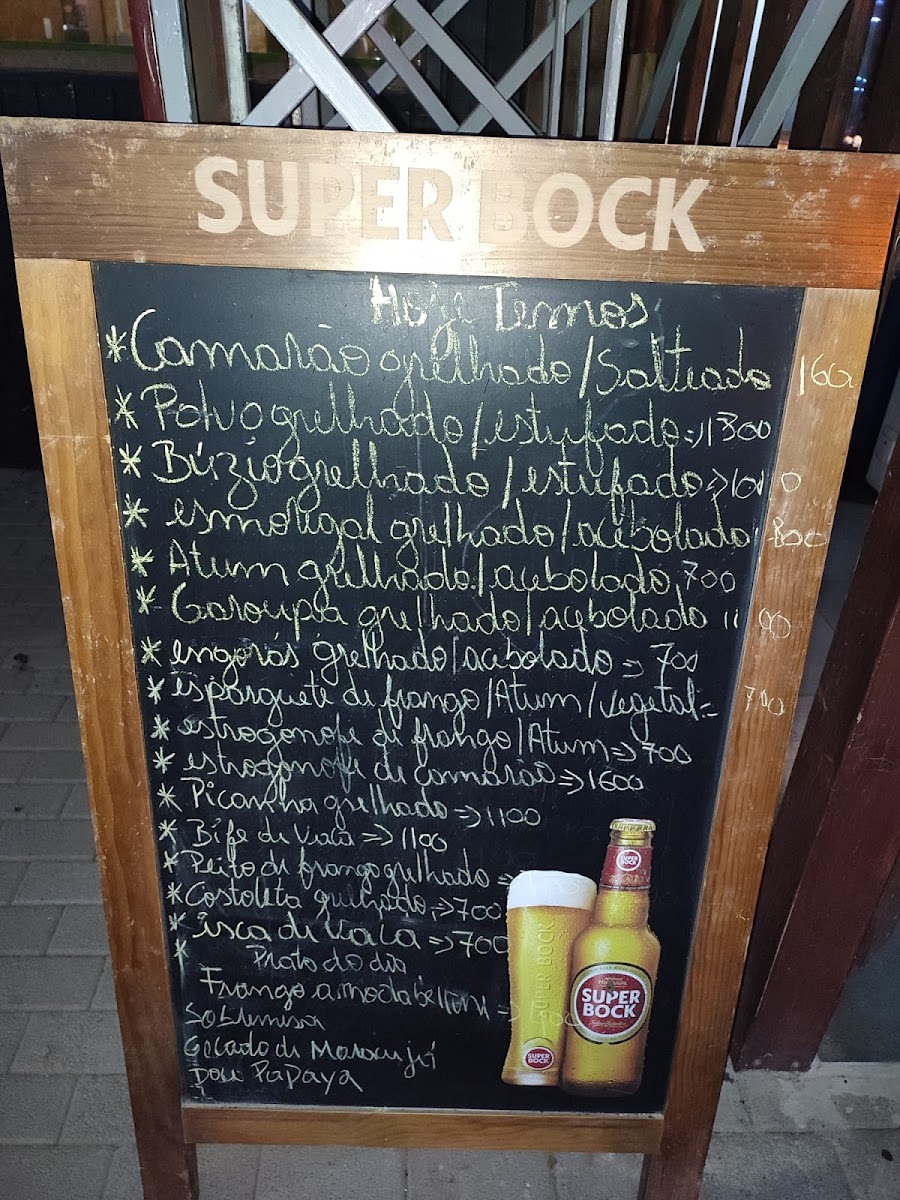 SUPER BOCK
Hoje Temos
* Camarão grelhado / Salteado 160
* Polvo grelhado / estufado => 1300
* Búzio grelhado / estufado => 1000
* esmorigal grelhado / acebolado 800
* Atum grelhado / acebolado 700
* Garoupa grelhado / acebolado 1100
* engorás grelhado / acebolado => 700
* esparguete de frango / Atum / vegetal = 700
* estrogonofe de frango / Atum => 700
* estrogonofe de camarão => 1600
* Picanha grelhado => 1100
* Bife de Vaca => 1100
* Peito de frango grelhado =>
* Costoleta grelhado => 700
* isca di Vaca => 700
* Prato do dia
Frango a moda =>
Sobremisa
Gelado di Maracujá
Dou Papaya
SUPER BOCK
SUPER BOCK
SUPER BOCK
PORTUGAL
SUPER BOCK